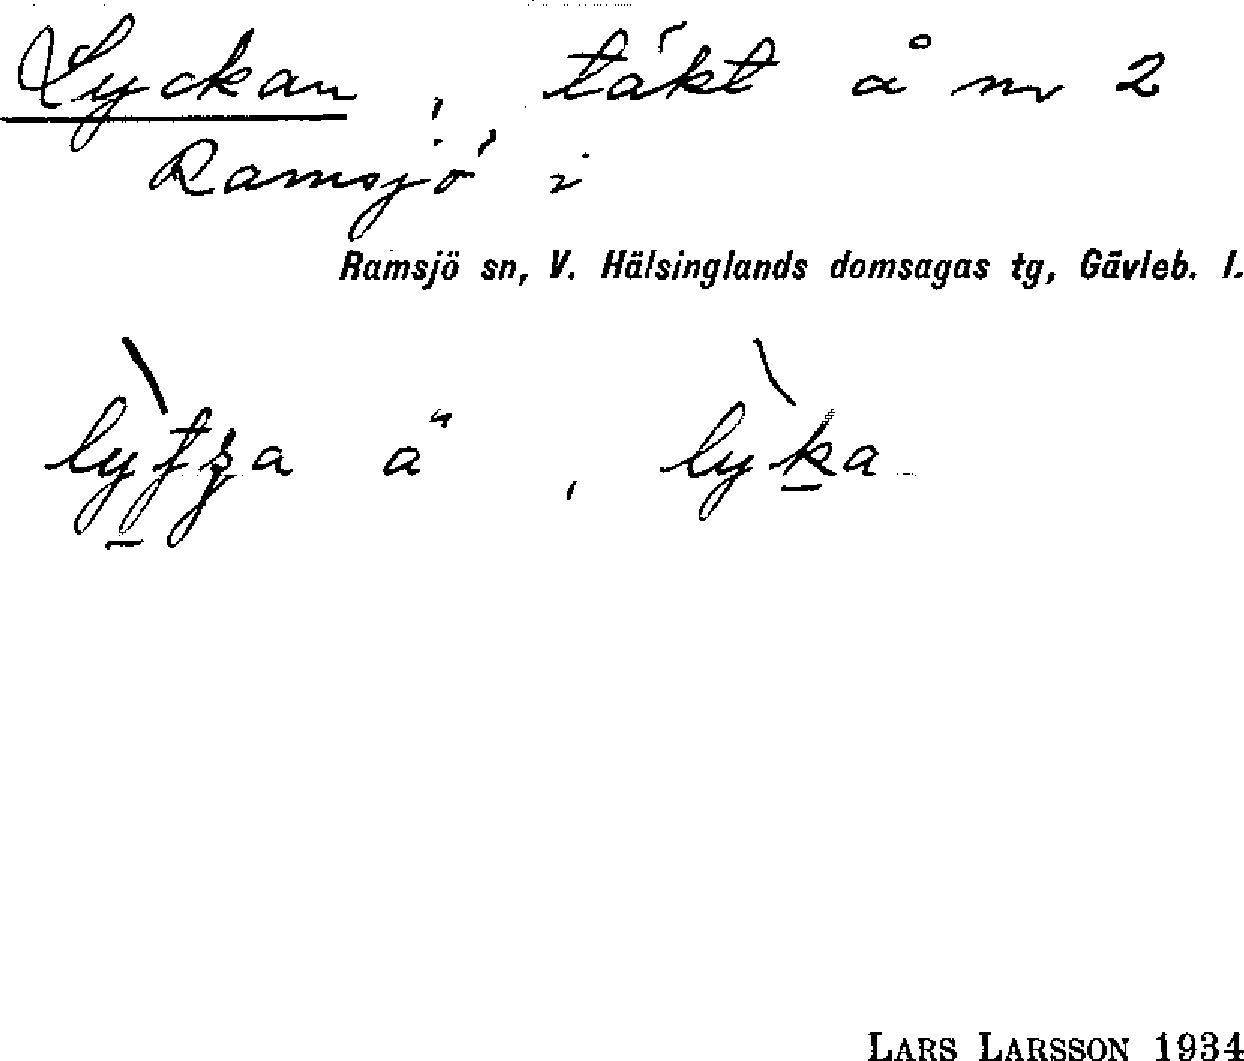 Lyckan, täkt å nr 2
Ramsjö i
Ramsjö sn, V. Hälsinglands domsagas tg, Gävleb. l.
ä, lyka
LARS LARSSON 1934